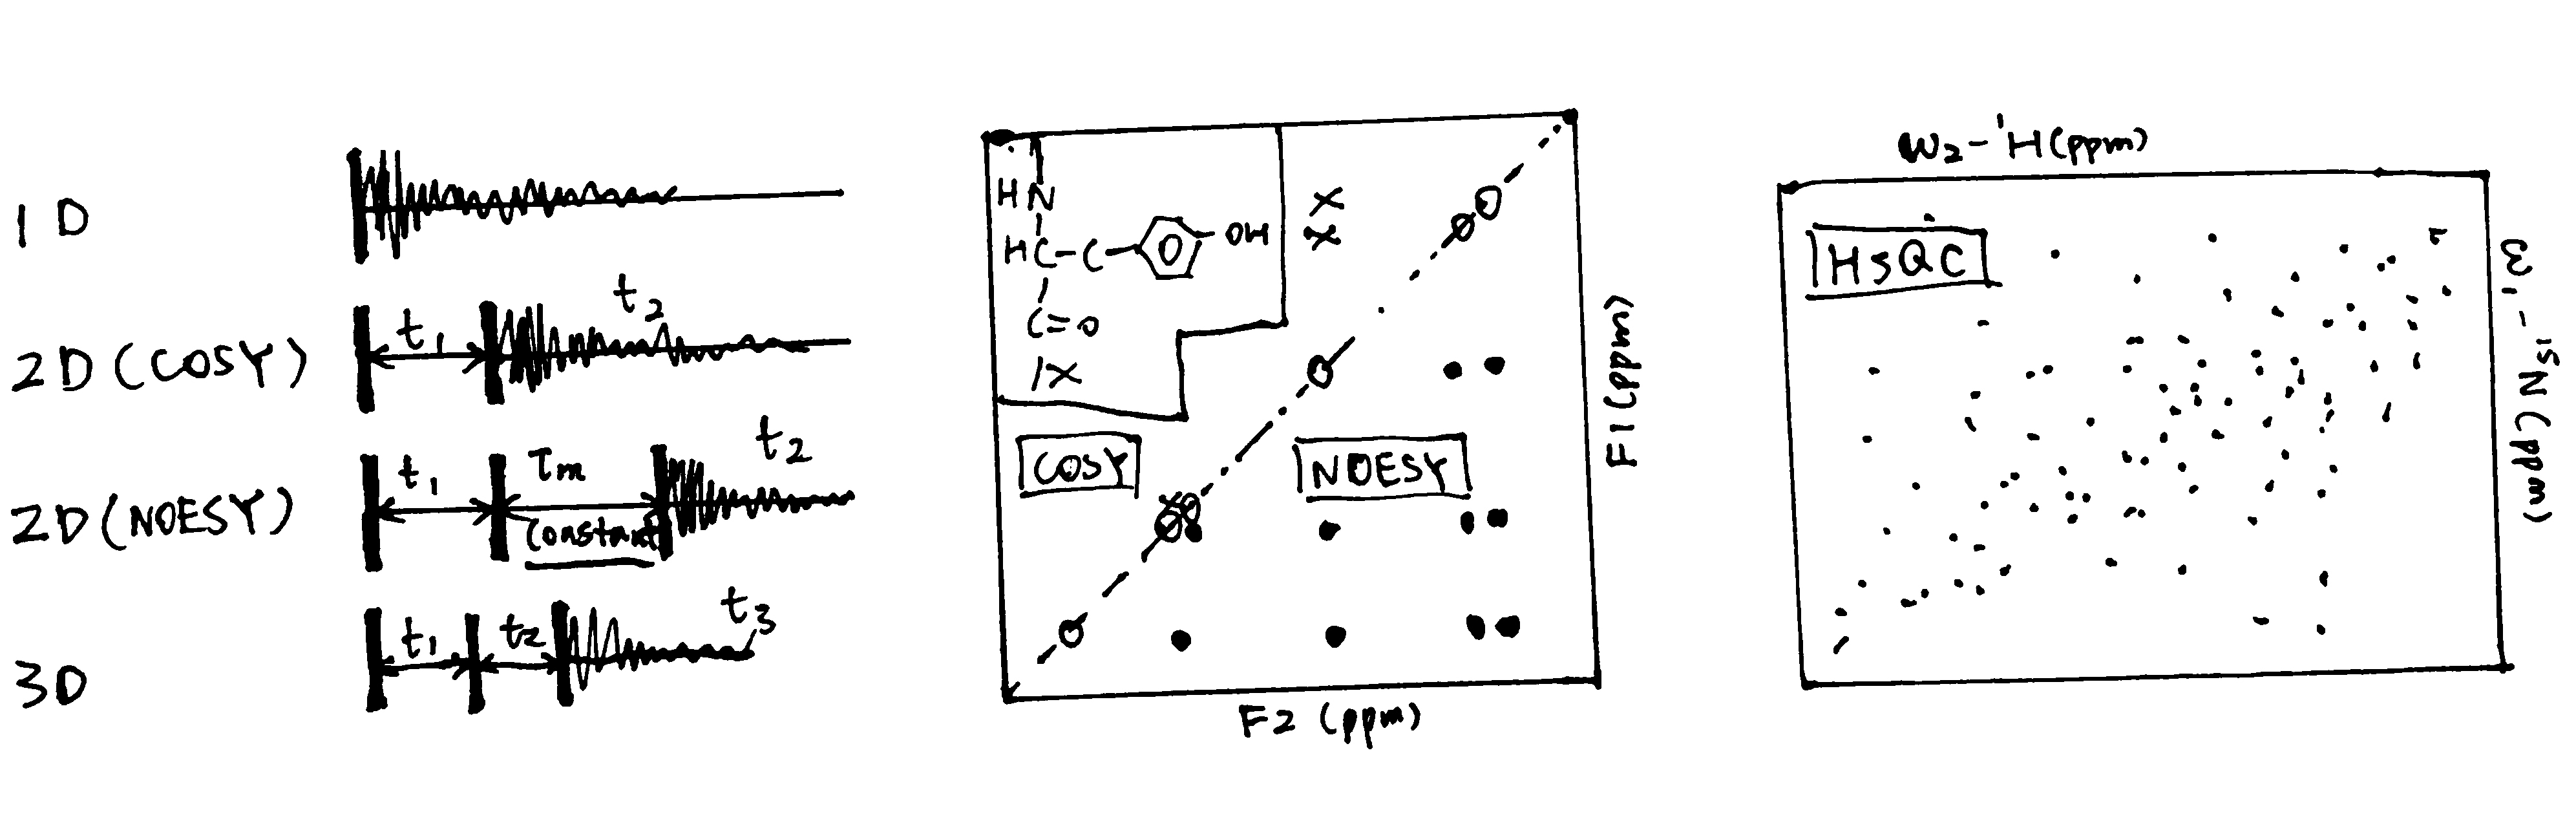 1D
2D (COSY)
t1
t2
2D (NOESY)
t1
τm
Constant
t2
3D
t1
t2
t3
HN
HC-C
OH
C=O
X
X
X
X
COSY
NOESY
F1 (ppm)
F2 (ppm)
W2-¹H (ppm)
HSQC
ω1-N15 (ppm)